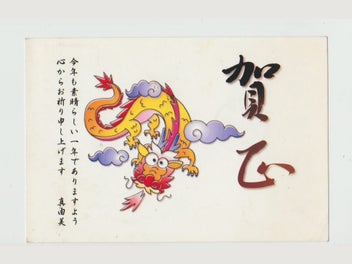 賀正
今年も素晴らしい一年でありますよう
心からお祈り申し上げます
真由美